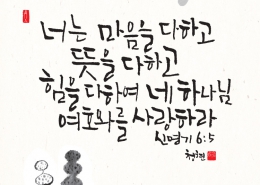 너는 마음을 다하고
뜻을 다하고
힘을 다하여 네 하나님
여호와를 사랑하라
신명기 6:5